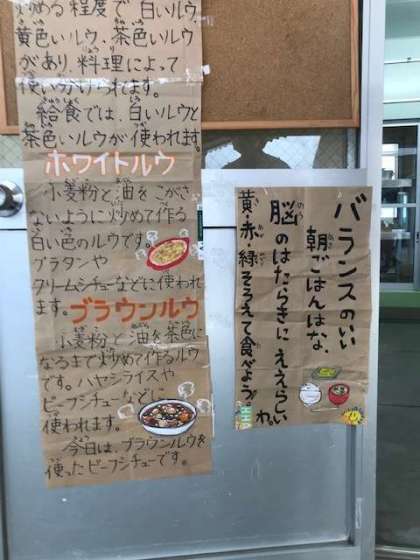 炒める程度で、白いルウ、
黄色いルウ、茶色いルウ
があり、料理によって
使い分けられます。
給食では、白いルウと
茶色いルウが使われます。
ホワイトルウ
小麦粉と油をこがさ
ないように炒めて作る
白い色のルウです。
グラタンや
クリームシチューなどに使われ
ます。
ブラウンルウ
小麦粉と油を茶色に
なるまで炒めて作るルウ
です。ハヤシライスや
ビーフシチューなどに
使われます。
今日は、ブラウンルウを
使ったビーフシチューです。
バランスのいい
朝ごはんはな、
脳のはたらきにええらしいわ。
黄・赤・緑そろえて食べよう!